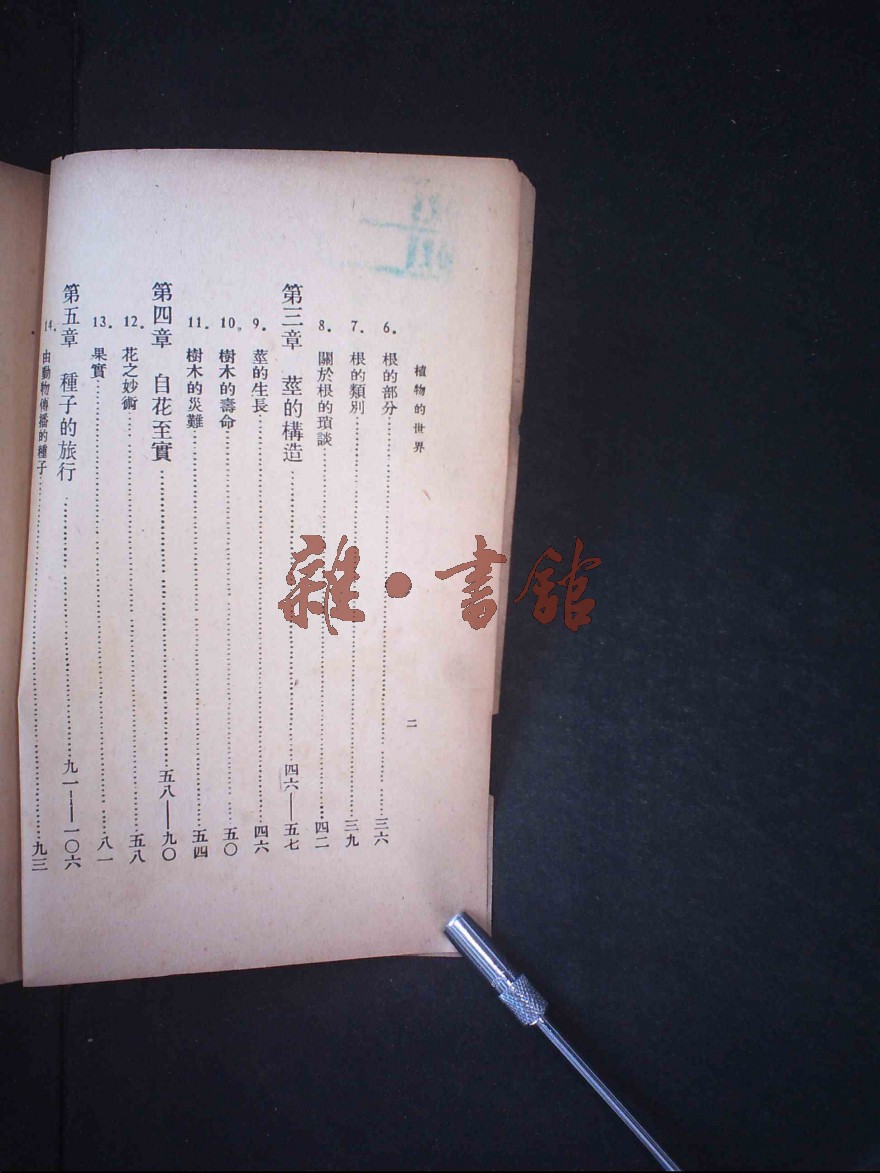 植物的世界
二
6. 根的部分……三六
7. 根的類別……三九
8. 關於根的瑣談……四二
第三章 莖的構造……四六——五七
9. 莖的生長……四六
10. 樹木的壽命……五〇
11. 樹木的災難……五四
第四章 自花至實……五八——九〇
12. 花之妙術……五八
13. 果實……八一
第五章 種子的旅行……九一——一〇六
14. 由動物傳播的種子……九三
雜·書館